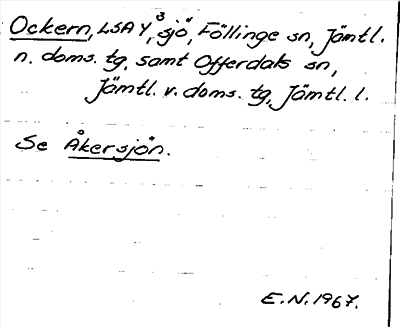 Ockern, LSA Y³, sjö, Föllinge sn, Jämtl.
n. doms. tg, samt Offerdals sn,
Jämtl. v. doms. tg, Jämtl. l.
Se Åkersjön.
E.N. 1967.